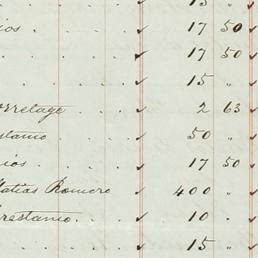 15 "
ios . . . . ✓ 17 50 ✓
. . . . ✓ 17 50 ✓
. . . . ✓ 15 " ✓
rretage . . . ✓ 2 63 ✓
stamo . . . ✓ 50 " ✓
ios . . . . ✓ 17 50 ✓
Matias Romero ✓ 400 " ✓
restamo . . . ✓ 10 " ✓
. . . . ✓ 15 " ✓